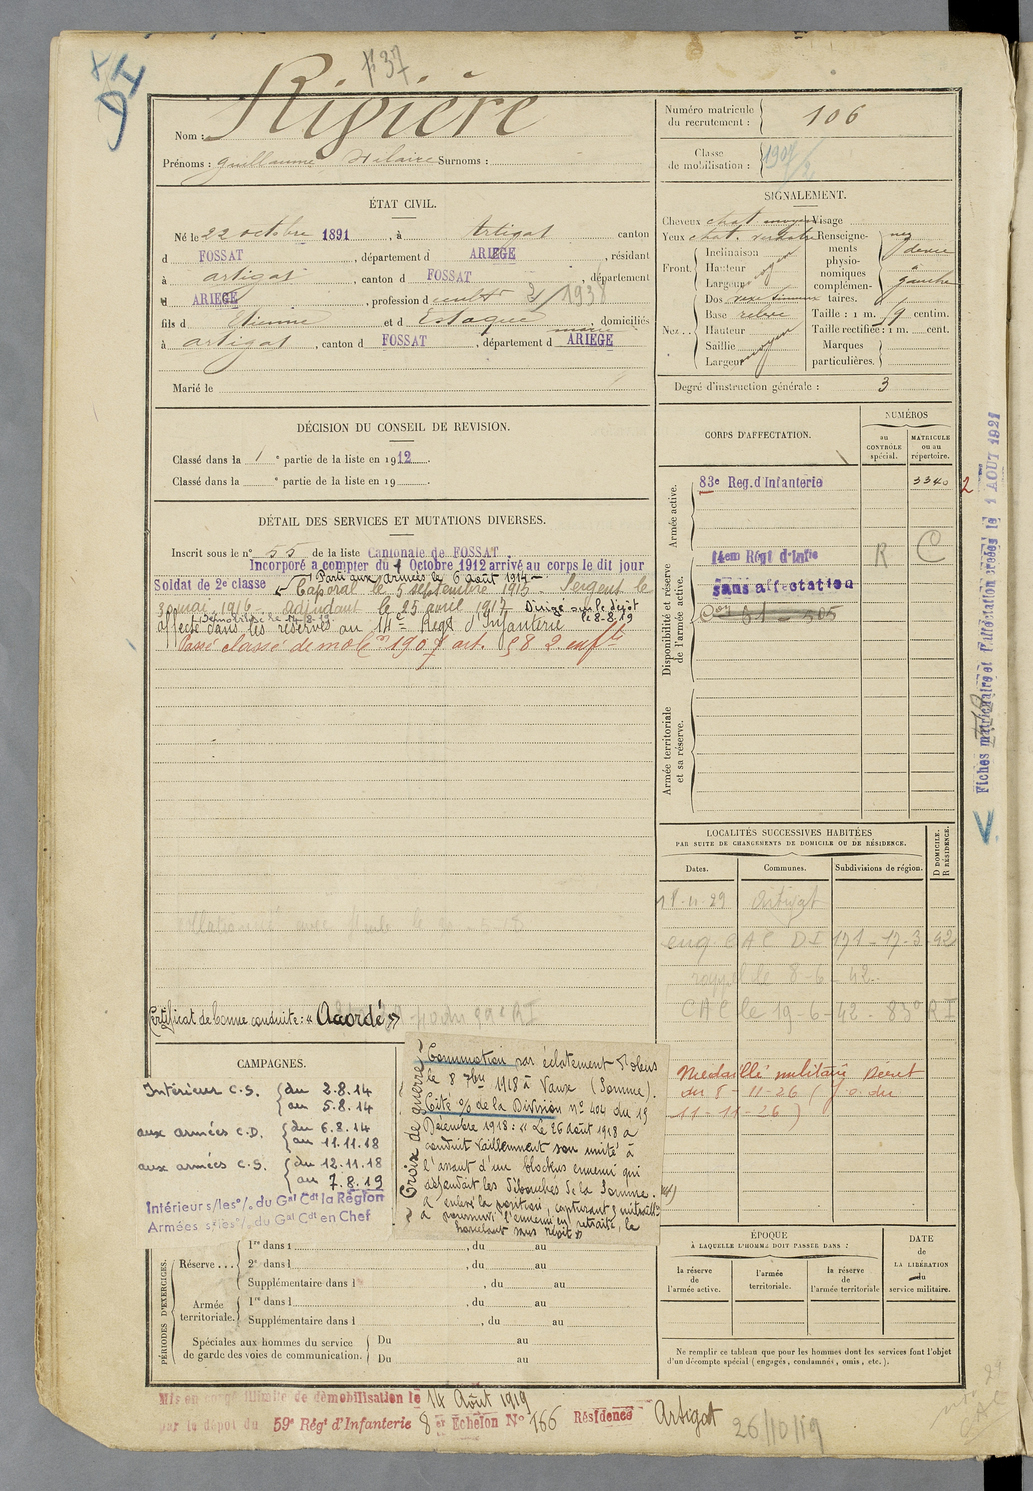 1137
DI
Nom : Rigière
Prénoms : Guillaume Hilaire Surnoms :
Numéro matricule du recrutement : 106
Classe de mobilisation : 1907
ÉTAT CIVIL.
Né le 22 octobre 1891, à Artigat canton
d FOSSAT, département d ARIEGE, résidant
à artigat, canton d FOSSAT, département
d ARIEGE, profession d cultr
fils d Etienne et d Estaque, domiciliés
à artigat, canton d FOSSAT, département d ARIEGE
Marié le
SIGNALEMENT.
Cheveux chat Visage
Yeux chat. Renseigne-
ments
physio-
nomiques
complémen-
taires.
nez
gauche
Front.
Inclinaison
Hauteur
Largeur
Nez
Dos
Base releve
Hauteur
Saillie
Largeur moyen
Taille : 1 m. centim.
Taille rectifiée : 1 m. cent.
Marques
particulières.
Degré d'instruction générale : 3
DÉCISION DU CONSEIL DE REVISION.
Classé dans la 1e partie de la liste en 1912.
Classé dans la e partie de la liste en 19
CORPS D'AFFECTATION.
NUMÉROS
au CONTRÔLE spécial.
MATRICULE ou au répertoire.
Armée active.
83e Reg. d'Infanterie 3340 2
Disponibilité et réserve de l'armée active.
14em Régt d'Infie R C
sans affectation
Armée territoriale et sa réserve.
DÉTAIL DES SERVICES ET MUTATIONS DIVERSES.
Inscrit sous le n° 55 de la liste Cantonale de FOSSAT.
Incorporé a compter du 1 Octobre 1912 arrivé au corps le dit jour
Parti aux armées le 6 août 1914
Soldat de 2e classe Caporal le 5 septembre 1915. Sergent le
mai 1916. adjudant le 25 avril 1917 Dirigé sur le dépôt
le 8-8-19
affecté dans les réserves au 14e Régt d'Infanterie
Passé classe de mob on 1907 art. 58 2 enfts
Certificat de bonne conduite : « Accordé »
LOCALITÉS SUCCESSIVES HABITÉES
PAR SUITE DE CHANGEMENTS DE DOMICILE OU DE RÉSIDENCE.
Dates. Communes. Subdivisions de région. D DOMICILE. R RÉSIDENCE.
18-11-29 Artigat
eng. CAC DI 171 - 17-3-42
rappel le 8-6-42
CAC le 19-6-42 - 83e RI
Medaillé militaire Decret
du 8-11-26 (J.O. du
11-11-26)
CAMPAGNES.
Intérieur C.S. du 2.8.14
au 5.8.14
aux armées C.D. du 6.8.14
au 11.11.18
aux armées C.S. du 12.11.18
au 7.8.19
Intérieur s/les o/. du Gal Cdt la Région
Armées s/les o/. du Gal Cdt en Chef
Croix de guerre
Commotion par éclatement d'obus
le 8 7bre 1918 à Vaux (Somme).
Cité o/o de la Division n° 404 du 19
Décembre 1918 : « Le 26 août 1918 a
conduit vaillamment son unité à
l'assaut d'un blockus ennemi qui
défendait les débouchés de la Somme.
A enlevé la position, capturant 3 mitraill
a poursuivi l'ennemi en retraite, le
harcelant sans répit »
PÉRIODES D'EXERCICES.
Réserve ...
1re dans l , du au
2e dans l , du au
Supplémentaire dans l , du au
Armée territoriale.
1re dans l , du au
Supplémentaire dans l , du au
Spéciales aux hommes du service
de garde des voies de communication.
Du au
Du au
ÉPOQUE
À LAQUELLE L'HOMME DOIT PASSER DANS :
la réserve de l'armée active.
l'armée territoriale.
la réserve de l'armée territoriale
DATE de LA LIBÉRATION du service militaire.
Ne remplir ce tableau que pour les hommes dont les services font l'objet
d'un décompte spécial (engagés, condamnés, omis, etc.).
Mis en congé illimité de démobilisation le 14 Août 1919
par le dépôt du 59e Régt d'Infanterie 8 Echelon N° 166 Résidence Artigat
26/10/19
Fiches matriculaire et d'affectation créées le 1 AOUT 1921